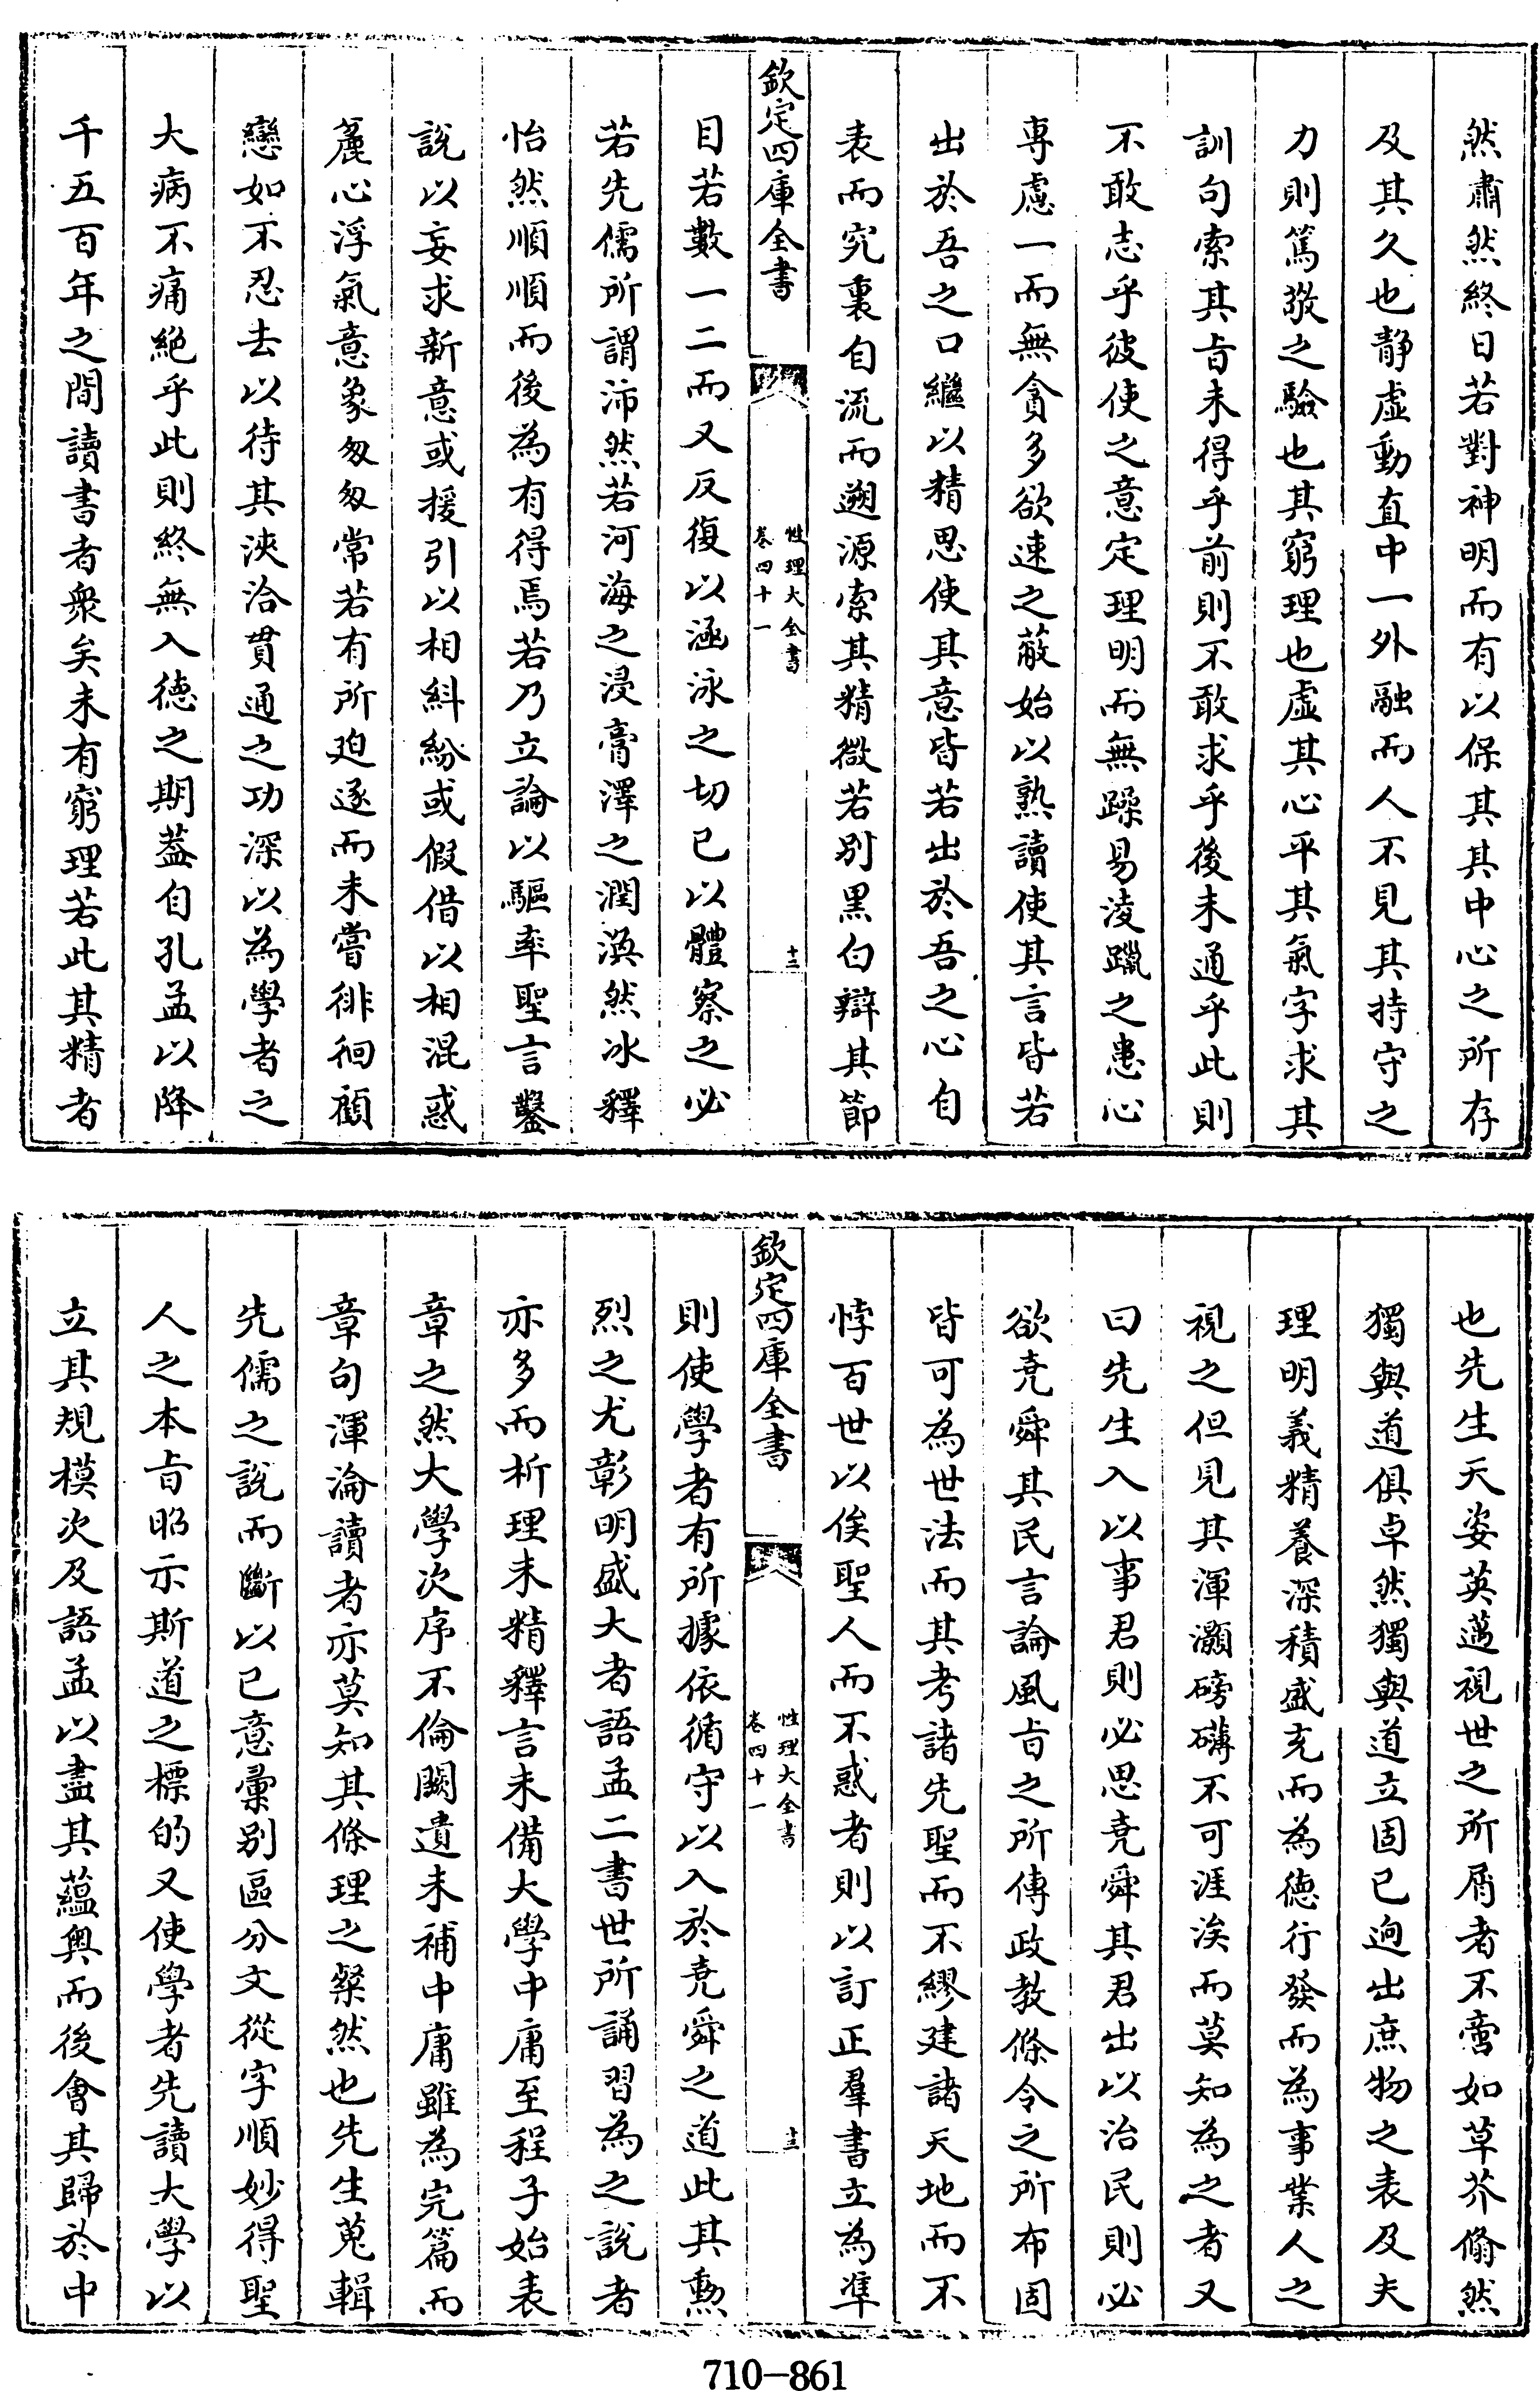 然肅然終日若對神明而有以保其其中心之所存
及其久也静虛動直中一外融而人不見其持守之
力則篤敬之驗也其窮理也虛其心平其氣字求其
訓句索其㫖未得乎前則不敢求乎後未通乎此則
不敢志乎彼使之意定理明而無躁易淩躐之患心
専慮一而無貪多欲速之蔽始以熟讀使其言皆若
出於吾之口繼以精思使其意皆若出於吾之心自
表而究裏自流而遡源索其精微若别黒白辯其節
欽定四庫全書
性理大全書
卷四十一
十二
目若數一二而又反復以涵泳之切已以體察之必
若先儒所謂沛然若河海之浸膏澤之潤渙然冰釋
怡然順順而後為有得焉若乃立論以驅率聖言鑿
說以妄求新意或援引以相紏紛或假借以相混惑
麤心浮氣意象匆匆常若有所廹逐而未嘗徘徊顧
戀如不忍去以待其浹洽貫通之功深以為學者之
大病不痛絶乎此則終無入德之期葢自孔孟以降
千五百年之間讀書者衆矣未有窮理若此其精者
也先生天姿英邁視世之所屑者不啻如草芥翛然
獨與道俱卓然獨與道立固已逈出庶物之表及夫
理明義精養深積盛充而為德行發而為事業人之
視之但見其渾灝磅礴不可涯涘而莫知為之者又
曰先生入以事君則必思堯舜其君出以治民則必
欲堯舜其民言論風㫖之所傳政教條令之所布固
皆可為世法而其考諸先聖而不繆建諸天地而不
悖百世以俟聖人而不惑者則以訂正羣書立為凖
欽定四庫全書
性理大全書
卷四十一
十三
則使學者有所據依循守以入於堯舜之道此其勲
烈之尤彰明盛大者語孟二書世所誦習為之說者
亦多而析理未精釋言未備大學中庸至程子始表
章之然大學次序不倫闕遺未補中庸雖為完篇而
章句渾淪讀者亦莫知其條理之粲然也先生蒐輯
先儒之說而斷以已意彚别區分文從字順妙得聖
人之本㫖昭示斯道之標的又使學者先讀大學以
立其規模次及語孟以盡其藴奥而後會其歸於中
710-861